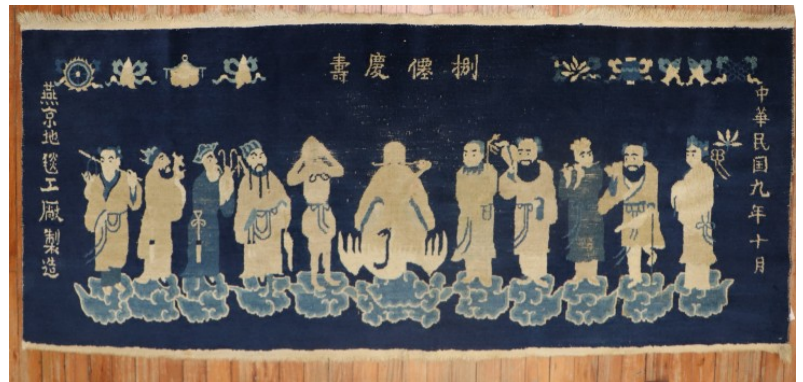 捌僊慶壽
中華民国九年十月
燕京地毯工廠製造